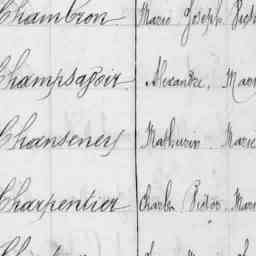 Chambron. Marie Joseph
Champsavoir. Alexandre,
Chanseney Mathurin. Marie
Charpentier Charles Victor. Marie